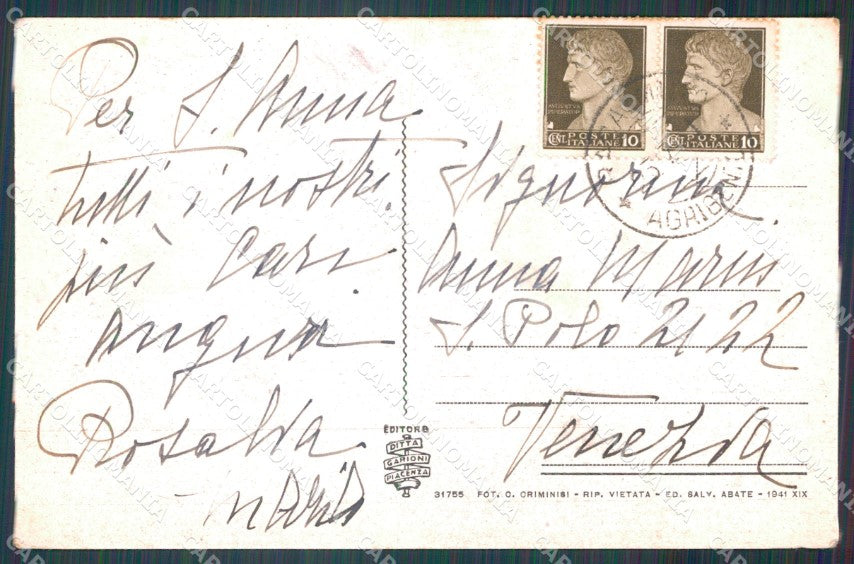 Per S. Anna
tutti i nostri
più Cari
Auguri
Rosalia
Maria
Signorina
Anna Marus
S. Polo 2122
Venezia
AVGVSTVS
IMPERATOR
CENT. POSTE ITALIANE 10
AVGVSTVS
IMPERATOR
CENT. POSTE ITALIANE 10
AGRIGENTO
EDITORE
DITTA
GARIONI
PIACENZA
31755 FOT. O. CRIMINISI - RIP. VIETATA - ED. SALV. ABATE - 1941 XIX
CARTOLINOMANIA